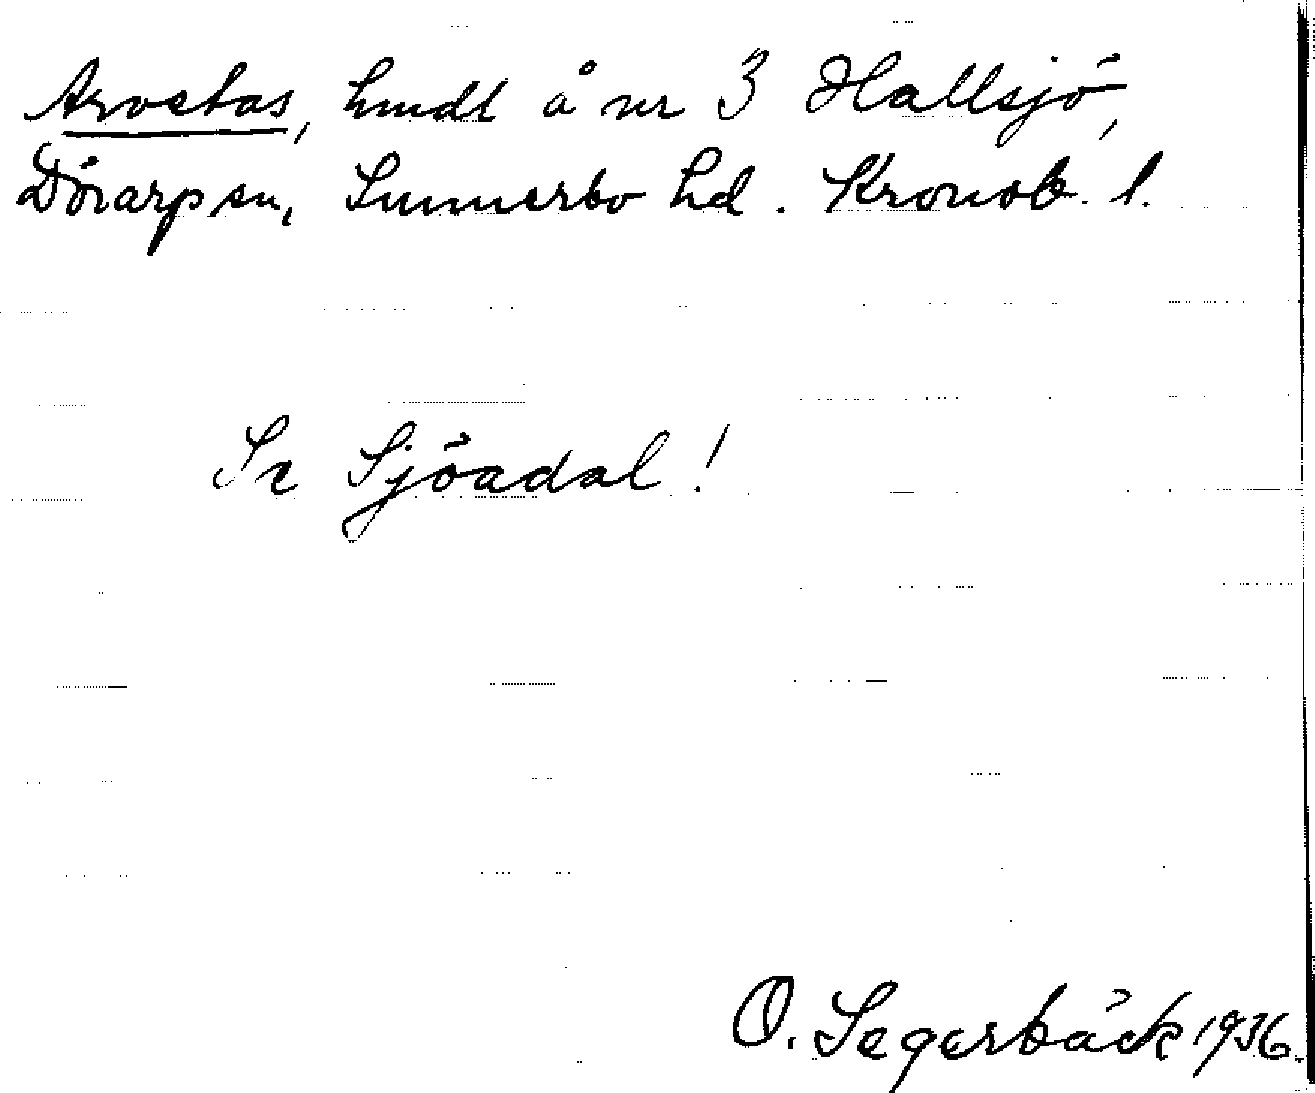 Arvetas, hmdt å nr 3 Hallsjö,
Dörarp sn, Sunnerbo hd. Kronob. l.
Se Sjöadal!
O. Segerbäck 1936.